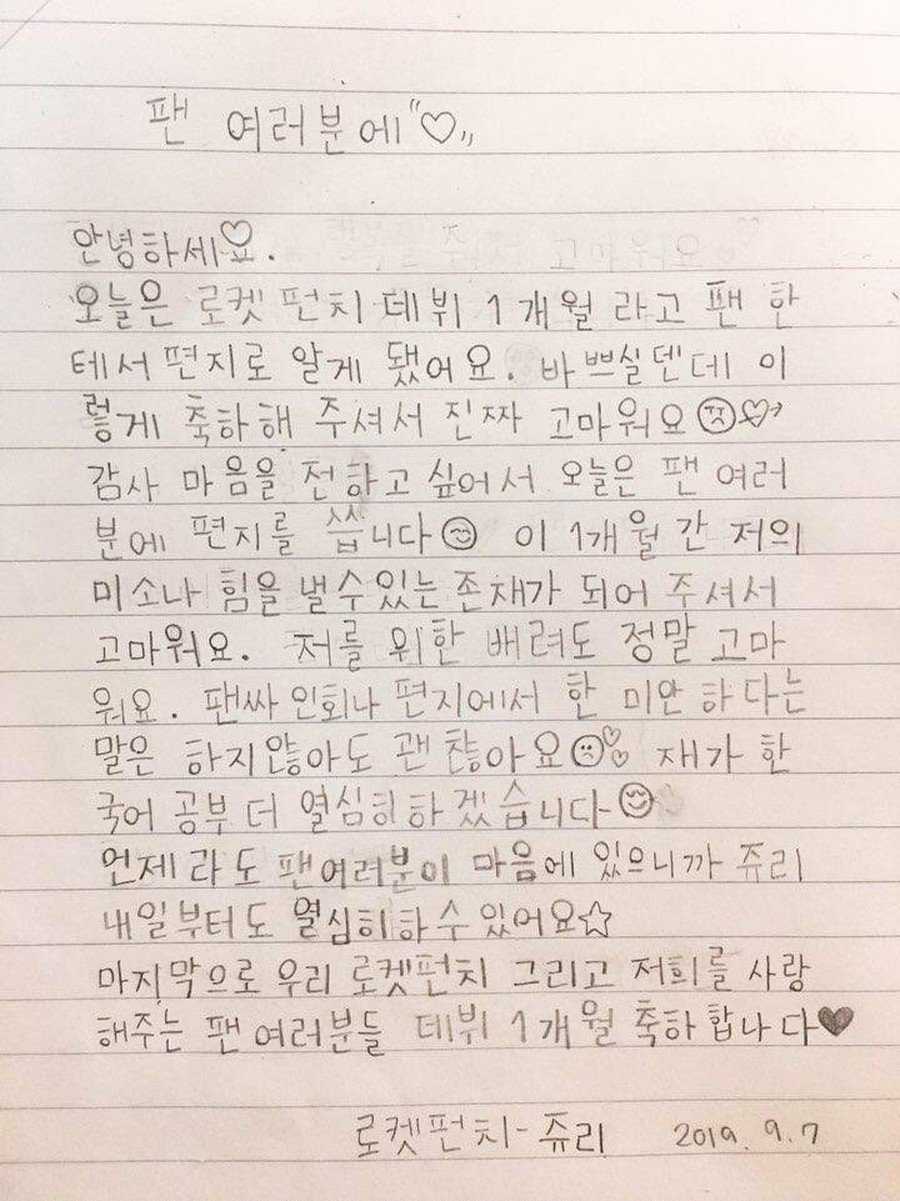 팬 여러분에"♡"
안녕하세요♡.
오늘은 로켓 펀치 데뷔 1개월 라고 팬 한
테서 편지로 알게 됐어요. 바쁘실덴데 이
렇게 축하해 주셔서 진짜 고마워요☹♡
감사 마음을 전하고 싶어서 오늘은 팬 여러
분에 편지를 씁니다😊 이 1개월 간 저의
미소나 힘을 낼수있는 존재가 되어 주셔서
고마워요. 저를 위한 배려도 정말 고마
워요. 팬싸 인회나 편지에서 한 미안 하다는
말은 하지않아도 괜찮아요☹♡♡ 재가 한
국어 공부 더 열심히하겠습니다😊
언제 라도 팬여러분이 마음에 있으니까 쥬리
내일부터도 열심히하수있어요☆
마지막으로 우리 로켓펀치 그리고 저희를 사랑
해주는 팬 여러분들 데뷔 1개월 축하합나다♥
로켓펀치-쥬리 2019. 9. 7